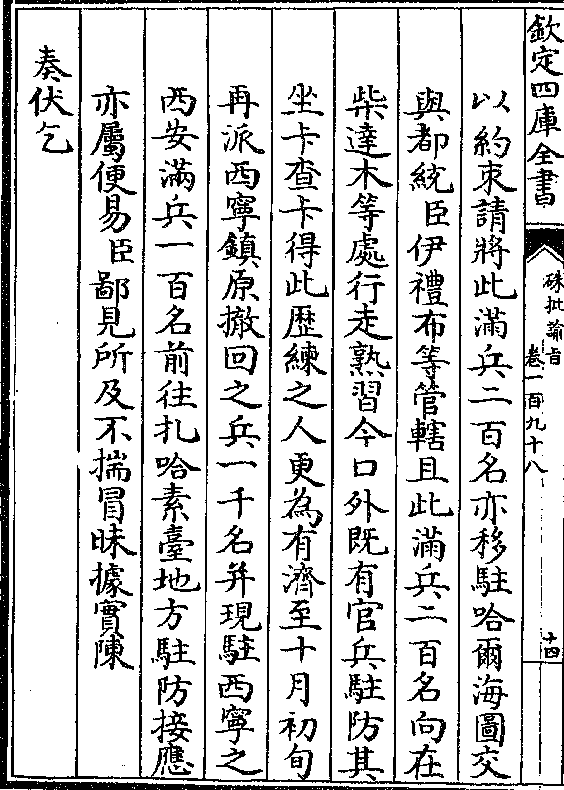 欽定四庫全書
硃批諭旨
卷一百九十八
十四
以約束請將此滿兵二百名亦移駐哈爾海圖交
與都統臣伊禮布等管轄且此滿兵二百名向在
柴達木等處行走熟習今口外既有官兵駐防其
坐卡查卡得此歷練之人更為有濟至十月初旬
再派西寧鎮原撤回之兵一千名并現駐西寧之
西安滿兵一百名前往扎哈素臺地方駐防接應
亦屬便易臣鄙見所及不揣冒昧據實陳
奏伏乞